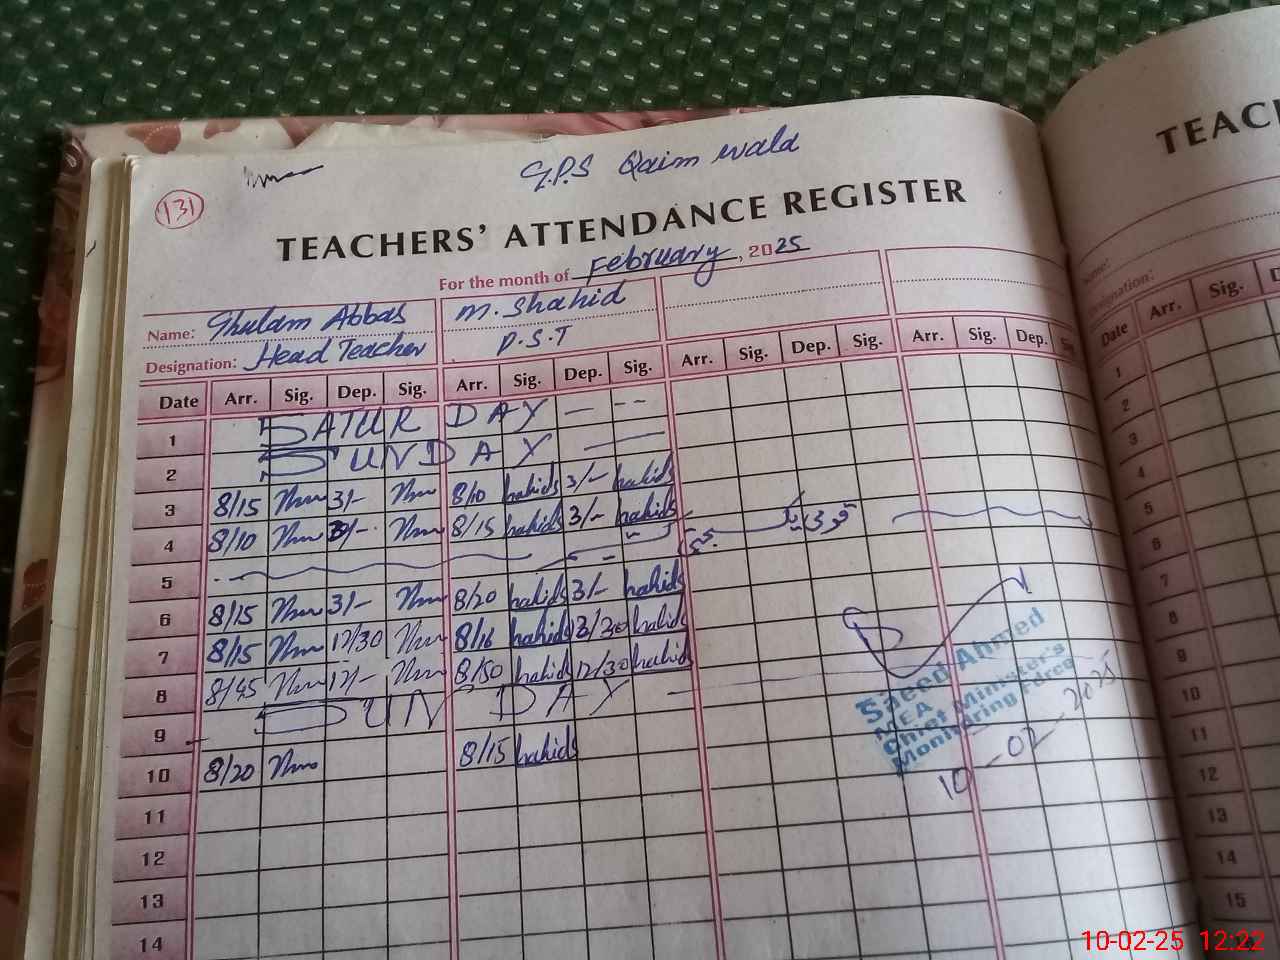 G.P.S Qaim wald
131
TEACHERS' ATTENDANCE REGISTER
For the month of February, 2025
Name: Ghulam Abbas M. Shahid
Designation: Head Teacher P.S.T
Date Arr. Sig. Dep. Sig. Arr. Sig. Dep. Sig. Arr. Sig. Dep. Sig. Arr. Sig. Dep.
1 SATURDAY
2 SUNDAY
3 8/15 3/- 8/10 hahids 3/- hahids
4 8/10 3/- 8/15 hahids 3/- hahids
5
6 8/15 3/- 8/20 hahids 3/- hahids
7 8/15 12/30 8/16 hahids 12/30 hahids
8 8/45 12/- 8/50 hahids 12/30 hahids
9 SUNDAY
10 8/20 8/15 hahids
11
12
13
14
Saeed Ahmed
MEA
Chief Minister's
Monitoring Force
10-02-2025
TEAC
Name:
Designation:
Date Arr. Sig. D
1
2
3
4
5
6
7
8
9
10
11
12
13
14
15
10-02-25 12:22